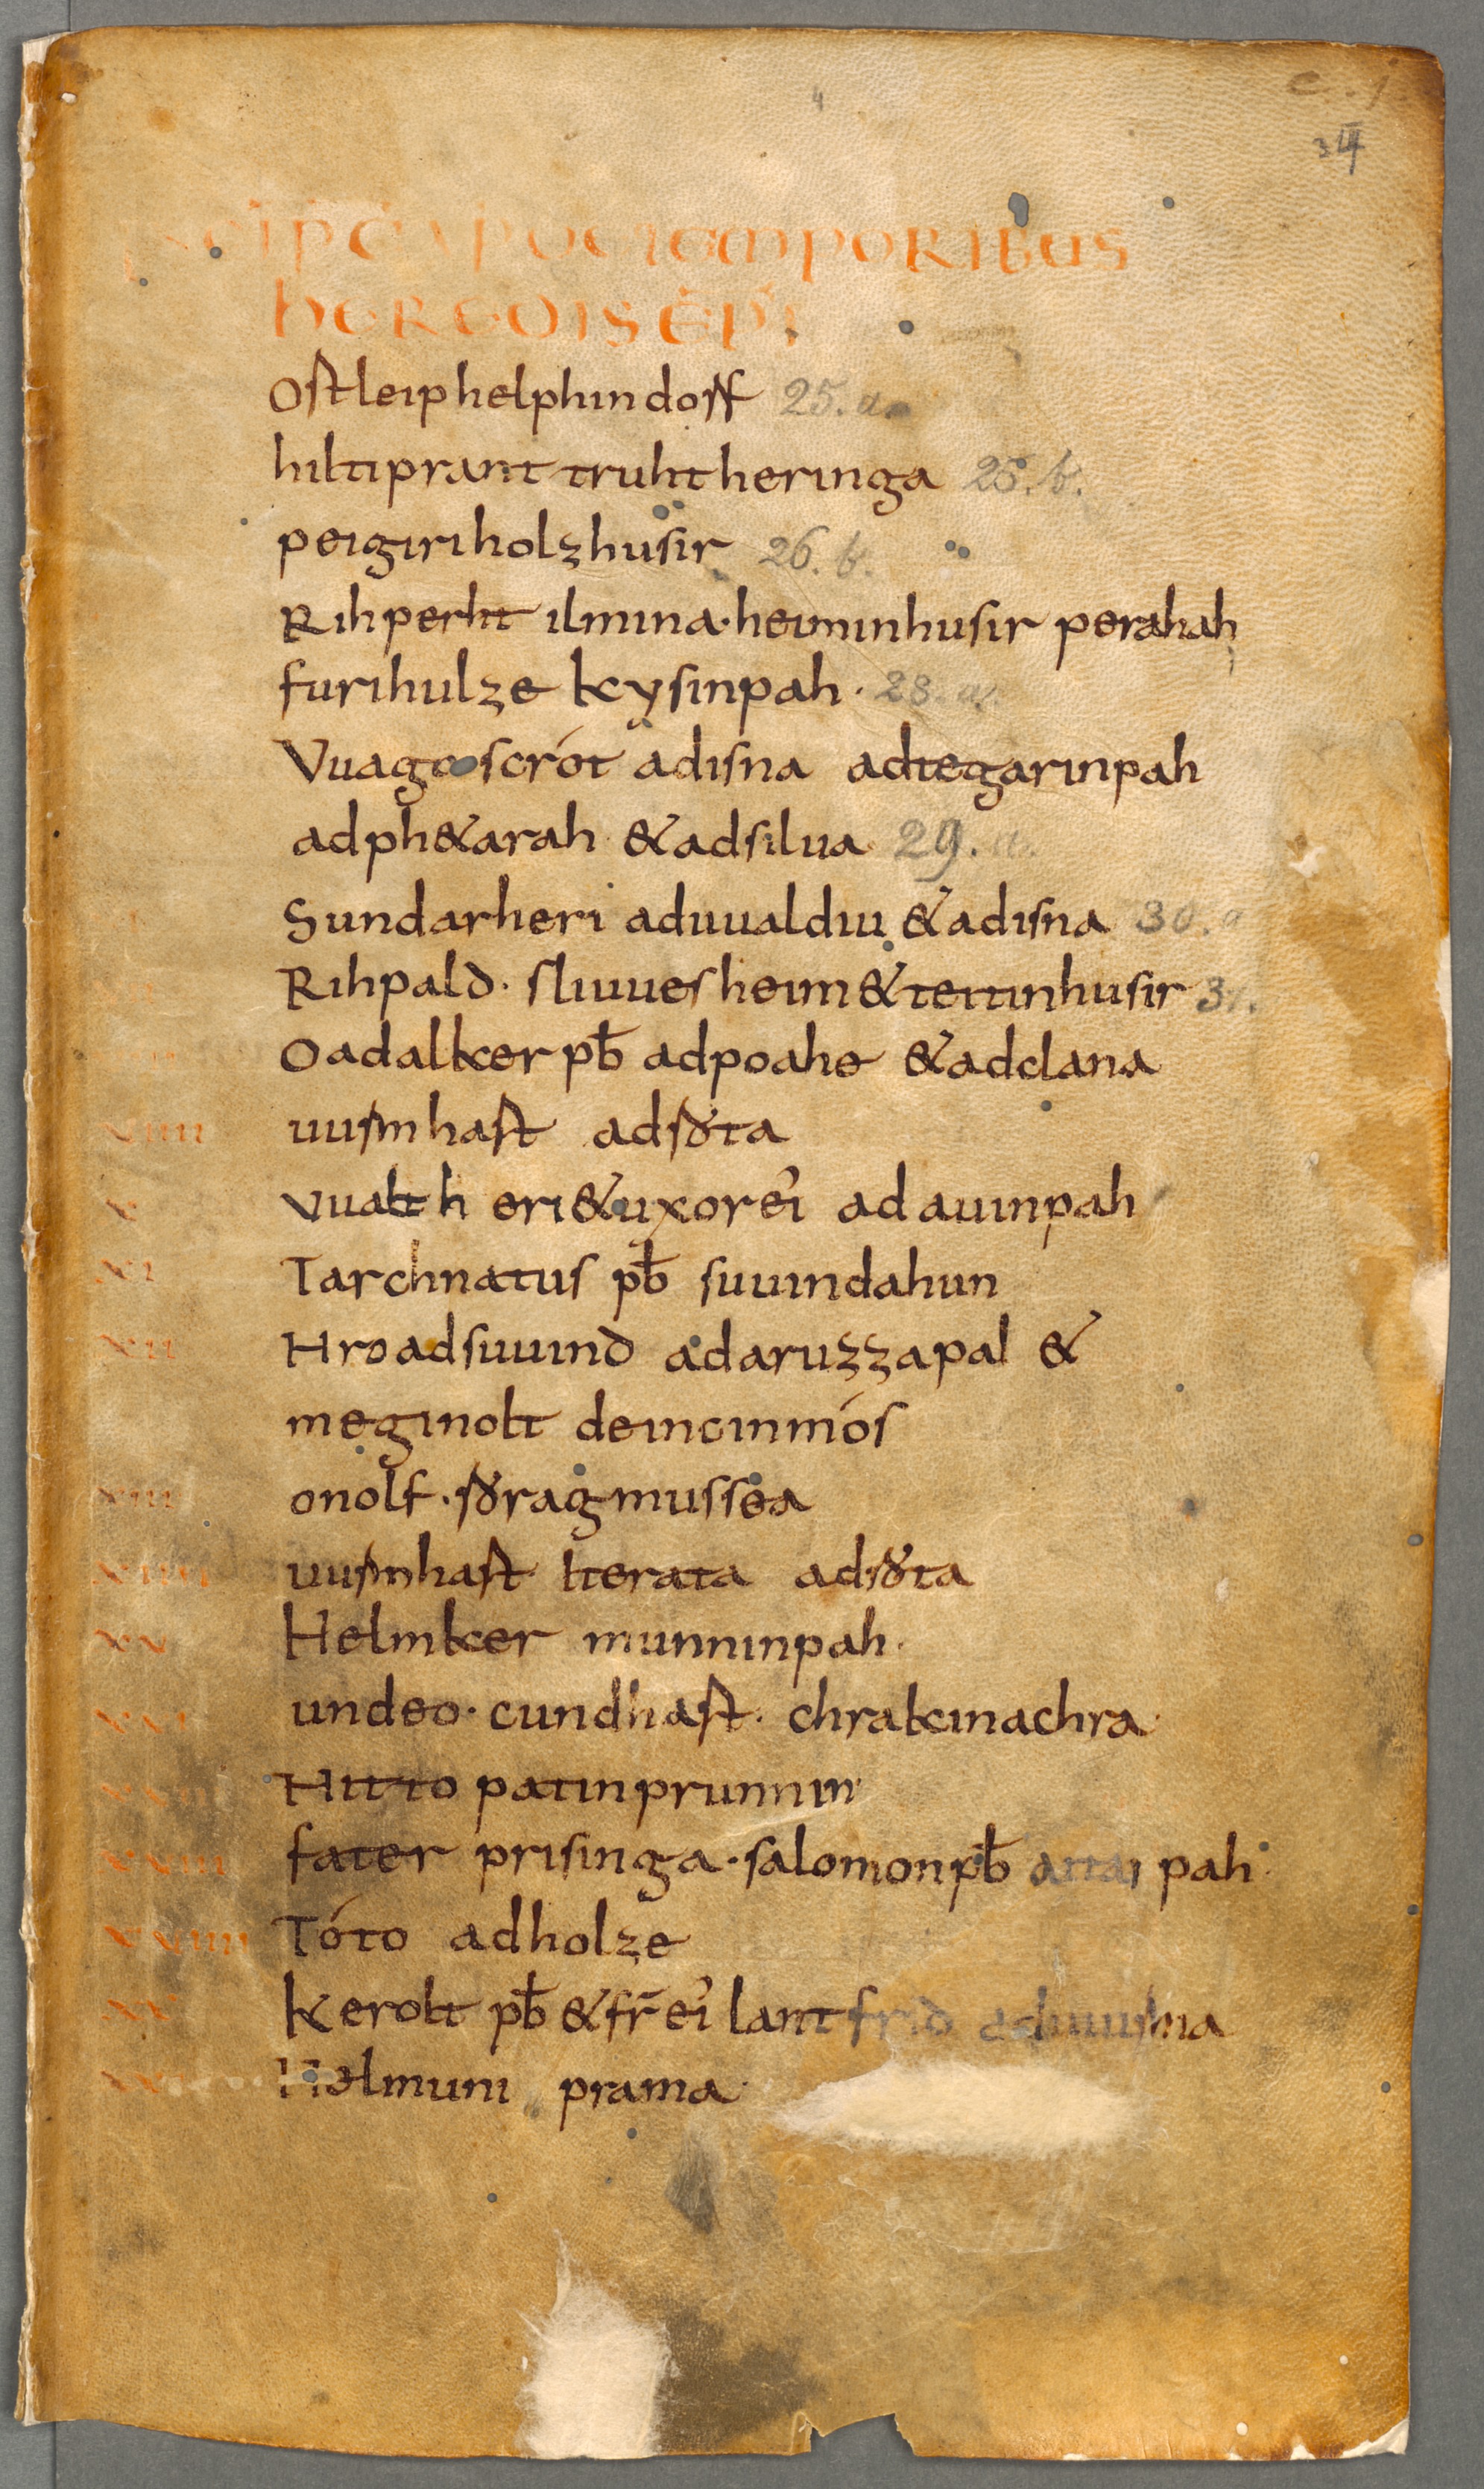 INCIP CAP DE TEMPORIBUS
HEREOIS EPI
Ostleip helphindorf 25. a.
hiltiprant truhtheringa 25. b.
peigiri holzhusir 26. b.
Rihperht ilmina · heiminhusir perahah
furihulze kysinpah · 28. a.
Vuagoscrót adisna adtegarinpah
adph&arah & adsilua 29. a.
Sundarheri aduualdiu & adisna 30. a
Rihpald · sliuuesheim & tettinhusir 31.
Oadalker pƀ adpoahe & adclana
VIIII uurmhart adsorta
X Vualtheri & uxor ei ad auuinpah
XI Tarchnatus pƀ suuindahun
XII Hroadsuuind adaruzzapal &
meginolt deincinmós
XIII onolf · soragmussea
XIIII uurmhart Iterata adsorta
XV Helmker munninpah ·
XVI undeo · cundhart · chrakinachra
XVII Hitto patinprunnin
XVIII fater prisinga · salomon pƀ attaipah
XVIIII Tóto adholze
XX Kerolt pƀ & fr̄ ei lantfrid
XXI Helmuni prama